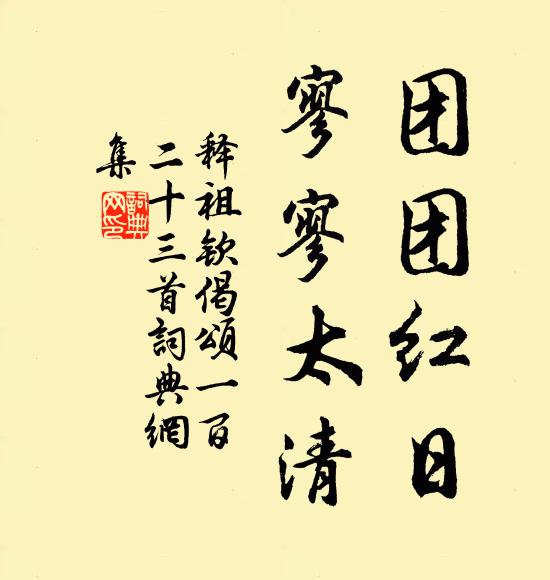 团团红日
寥寥太清
释祖钦偈颂一百
二十三首詞典網
集
詞典網印